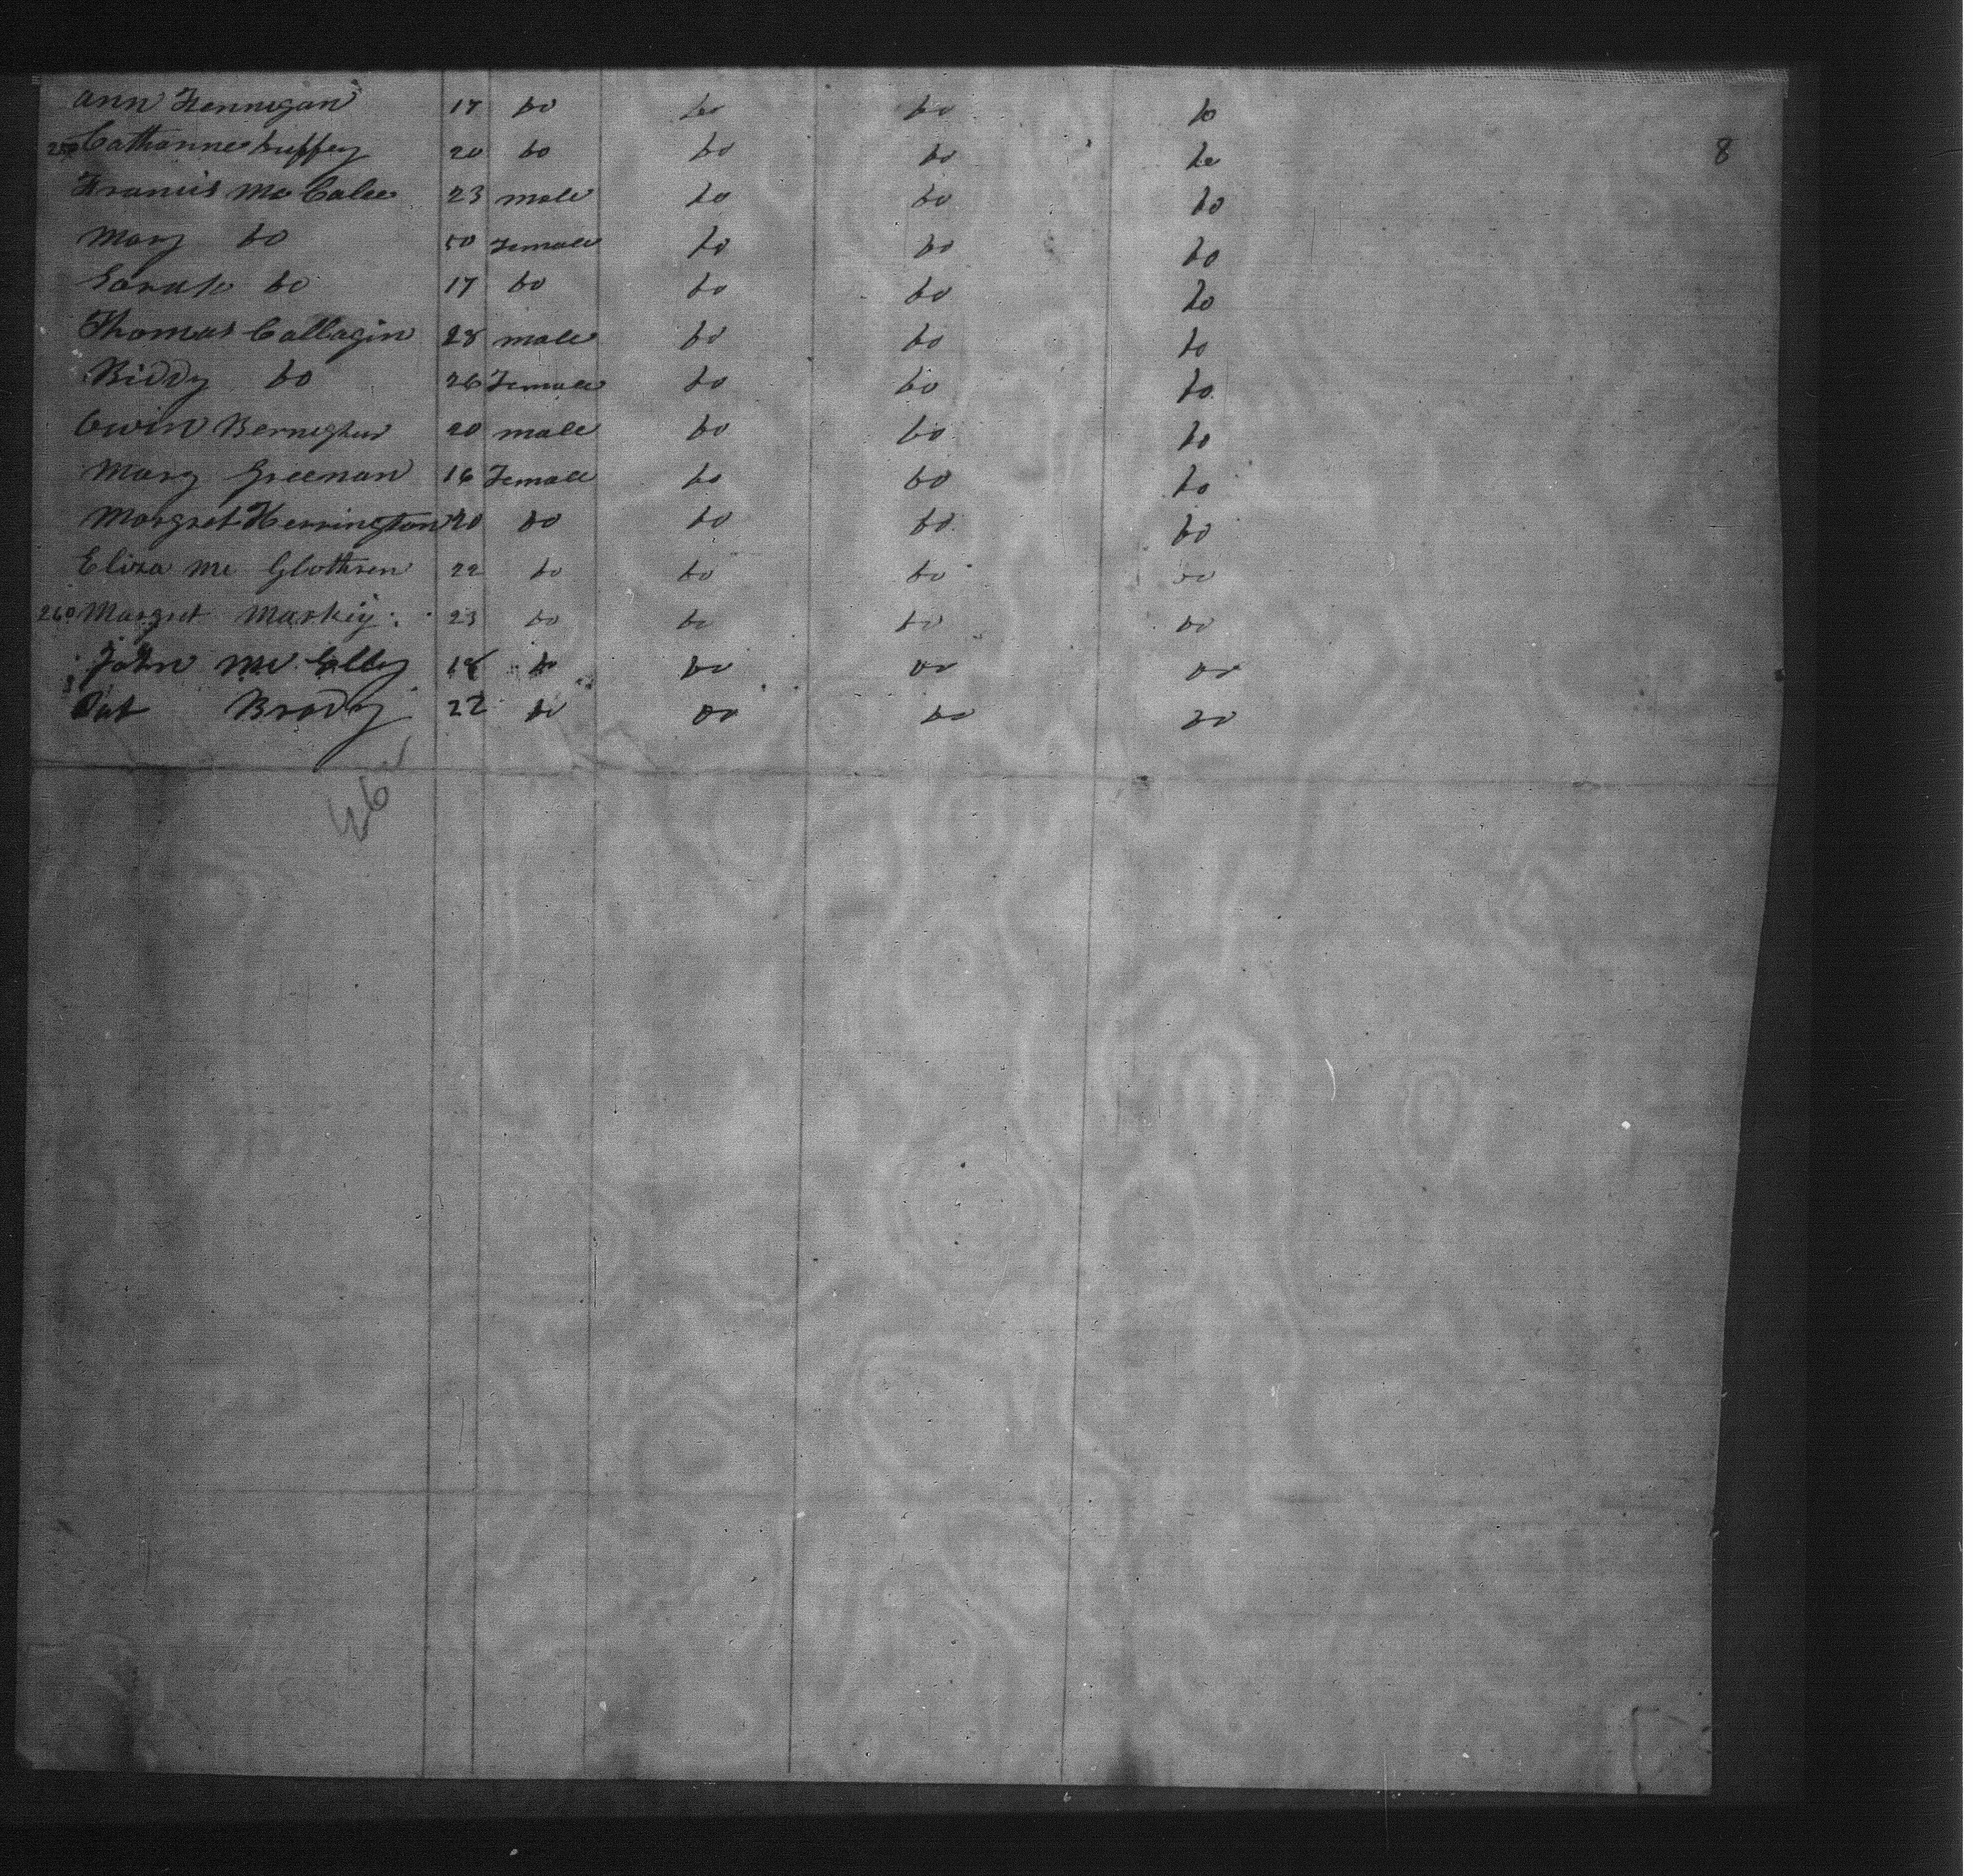 Ann Fennigan 17 Do Do Do Do
250 Catharine Duffey 20 Do Do Do Do
8
Francis McCabe 23 male Do Do Do
Mary Do 50 Female Do Do Do
Sarah Do 17 Do Do Do Do
Thomas Callagin 28 male Do Do Do
Biddy Do 26 Female Do Do Do
Owin 20 male Do Do Do
Mary Greenan 16 Female Do Do Do
Margret Herrington 20 Do Do Do Do
Eliza Mc Glothren 22 Do Do Do Do
260 Margret Markey 23 Do Do Do Do
John Mc 18 Do Do Do Do
Pat Brady 22 Do Do Do Do